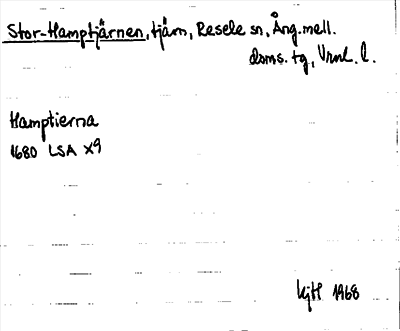 Stor-Hamptjärnen, tjärn, Resele sn, Ång. mell.
doms. tg, Vrnl. l.
Hamptierna
1680 LSA X9
KjH 1968